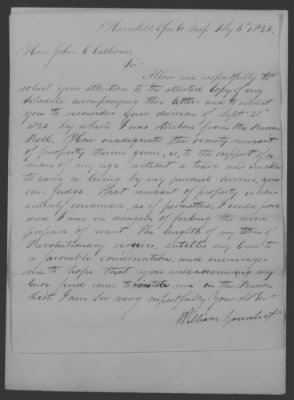 Haverhill Essex Co Mass July 6th 1823.
Hon John C Calhoun
Sir
Allow me respectfully to
solicit your attention to the attested copy of my
schedule accompanying this letter and to request
you to reconsider your decision of Sept 21st
1820 by which I was stricken from the Pension
Roll. How inadequate the scanty remnant
of property therein given, is, to the support of a
man of my age without a trade and unable
to earn a living by my personal services, you
can judge. That remnant of property is now
entirely consumed, as, if permitted, I could prove
and I am in danger of feeling the severe
pressure of want The length of my term of
Revolutionary services, entitles my case to
a favorable consideration, and encourages
me to hope that you in reexamining my
case find cause to reinstate me on the Pension
List I am Sir very respectfully Your obt Servt
William Greenleaf